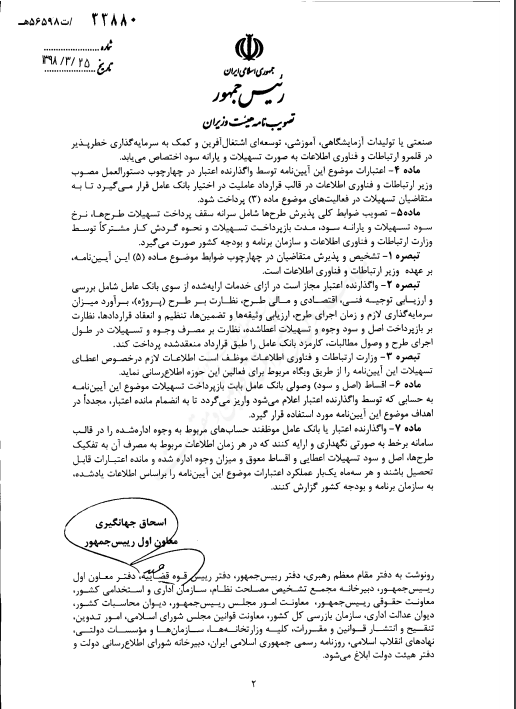 ۳۳۸۸۰ /ت۵۶۵۹۸هـ
شماره
تاریخ ۱۳۹۸/۳/۲۵
جمهوری اسلامی ایران
رئیس جمهور
تصویب نامه هیئت وزیران
صنعتی یا تولیدات آزمایشگاهی، آموزشی، توسعه‌ای اشتغال‌آفرین و کمک به سرمایه‌گذاری خطرپذیر
در قلمرو ارتباطات و فناوری اطلاعات به صورت تسهیلات و یارانه سود اختصاص می‌یابد.
ماده ۴- اعتبارات موضوع این آیین‌نامه توسط واگذارنده اعتبار در چهارچوب دستورالعمل مصوب
وزیر ارتباطات و فناوری اطلاعات در قالب قرارداد عاملیت در اختیار بانک عامل قرار می‌گیرد تا به
متقاضیان تسهیلات در فعالیت‌های موضوع ماده (۳) پرداخت شود.
ماده۵- تصویب ضوابط کلی پذیرش طرح‌ها شامل سرانه سقف پرداخت تسهیلات طرح‌ها، نرخ
سود تسهیلات و یارانه سود، مدت بازپرداخت تسهیلات و نحوه گردش کار مشترکاً توسط
وزارت ارتباطات و فناوری اطلاعات و سازمان برنامه و بودجه کشور صورت می‌گیرد.
تبصره ۱- تشخیص و پذیرش متقاضیان در چهارچوب ضوابط موضوع ماده (۵) این آیین‌نامه،
بر عهده وزیر ارتباطات و فناوری اطلاعات است.
تبصره ۲- واگذارنده اعتبار مجاز است در ازای خدمات ارایه‌شده از سوی بانک عامل شامل بررسی
و ارزیابی توجیه فنی، اقتصادی و مالی طرح، نظارت بر طرح (پروژه)، برآورد میزان
سرمایه‌گذاری لازم و زمان اجرای طرح، ارزیابی وثیقه‌ها و تضمین‌ها، تنظیم و انعقاد قراردادها، نظارت
بر بازپرداخت اصل و سود وجوه و تسهیلات اعطاشده، نظارت بر مصرف وجوه و تسهیلات در طول
اجرای طرح و وصول مطالبات، کارمزد بانک عامل را طبق قرارداد منعقدشده پرداخت کند.
تبصره ۳- وزارت ارتباطات و فناوری اطلاعات موظف است اطلاعات لازم درخصوص اعطای
تسهیلات این آیین‌نامه را از طریق وبگاه مربوط برای فعالین این حوزه اطلاع‌رسانی نماید.
ماده ۶- اقساط (اصل و سود) وصولی بانک عامل بابت بازپرداخت تسهیلات موضوع این آیین‌نامه
به حسابی که توسط واگذارنده اعتبار اعلام می‌شود واریز می‌گردد تا به انضمام مانده اعتبار، مجدداً در
اهداف موضوع این آیین‌نامه مورد استفاده قرار گیرد.
ماده ۷- واگذارنده اعتبار یا بانک عامل موظفند حساب‌های مربوط به وجوه اداره‌شده را در قالب
سامانه برخط به صورتی نگهداری و ارایه کنند که در هر زمان اطلاعات مربوط به مصرف آن به تفکیک
طرح‌ها، اصل و سود تسهیلات اعطایی و اقساط معوق و میزان وجوه اداره شده و مانده اعتبارات قابل
تحصیل باشند و هر سه‌ماه یک‌بار عملکرد اعتبارات موضوع این آیین‌نامه را براساس اطلاعات یادشده،
به سازمان برنامه و بودجه کشور گزارش کنند.
اسحاق جهانگیری
معاون اول رییس‌جمهور
رونوشت به دفتر مقام معظم رهبری، دفتر رییس‌جمهور، دفتر رییس قوه قضاییه، دفتر معاون اول
رییس‌جمهور، دبیرخانه مجمع تشخیص مصلحت نظام، سازمان اداری و استخدامی کشور،
معاونت حقوقی رییس‌جمهور، معاونت امور مجلس رییس‌جمهور، دیوان محاسبات کشور،
دیوان عدالت اداری، سازمان بازرسی کل کشور، معاونت قوانین مجلس شورای اسلامی، امور تدوین،
تنقیح و انتشار قوانین و مقررات، کلیه وزارتخانه‌ها، سازمان‌ها و مؤسسات دولتی،
نهادهای انقلاب اسلامی، روزنامه رسمی جمهوری اسلامی ایران، دبیرخانه شورای اطلاع‌رسانی دولت و
دفتر هیئت دولت ابلاغ می‌شود.
۲